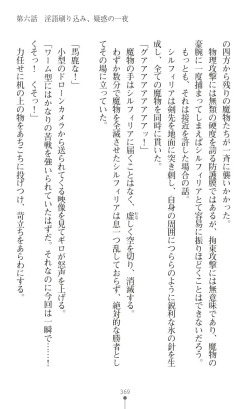 第六話　淫語刷り込み、疑惑の一夜
の四方から残りの魔物たちが一斉に襲いかかった。
物理攻撃には無類の硬度を誇る防護膜であるが、拘束攻撃には無意味であり、魔物の
豪腕に一度捕まってしまえばシルフィリアとて容易に振りほどくことはできないだろう。
もっとも、それは接近を許した場合の話。
シルフィリアは剣先を地面に突き刺し、自身の周囲につららのような鋭利な氷の針を生
やし、全ての魔物を同時に貫いた。
「アアアアアアアッ！」
魔物の手はシルフィリアに届くことはなく、虚しく空を切り、消滅する。
わずか数分で魔物を全滅させたシルフィリアは息一つ乱しておらず、絶対的な勝者とし
てその場に立っていた。
「馬鹿な！」
小型のドローンカメラから送られてくる映像を見てギロが怒声を上げる。
「ワーム型にはかなりの苦戦を強いられていたはずだ。それなのに今回は一瞬で……！
くそっ！　くそっ！」
力任せに机の上の物をあちこちに投げつけ、苛立ちをあらわにする。
369